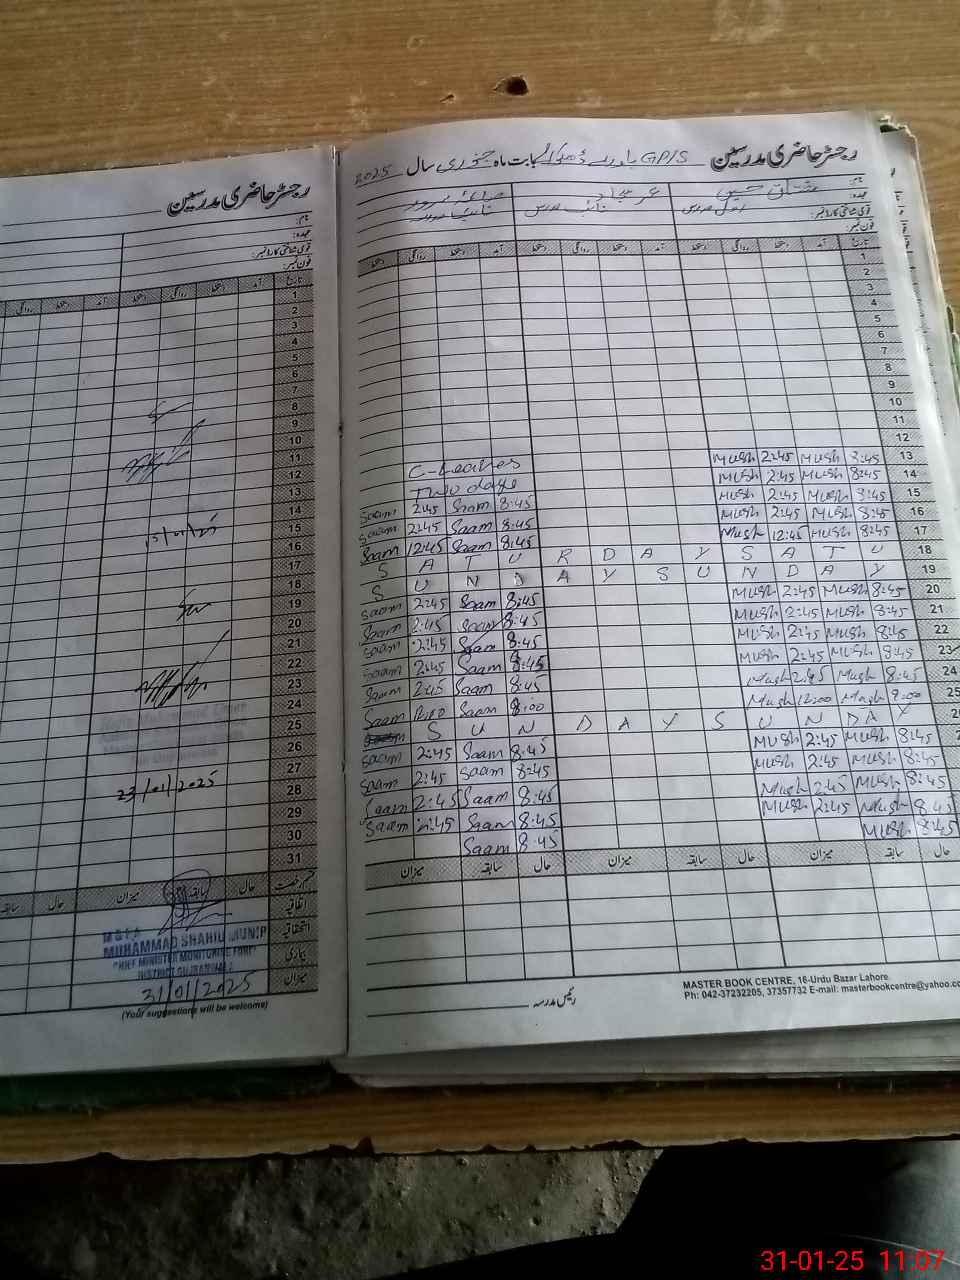 رجسٹر حاضری مدرسین
نام:
عہدہ:
قومی شناختی کارڈ نمبر:
فون نمبر:
تاریخ آمد دستخط روانگی دستخط آمد دستخط روانگی
1
2
3
4
5
6
7
8
9
10
11
12
13
14
15
15/01/25
16
17
18
19
20
21
22
23
24
25
26
27
28
23/01/2025
29
30
31
قسم رخصت حال سابقہ میزان حال سابقہ
اتفاقیہ
استحقاقیہ
بیماری
میزان
MUHAMMAD SHAHID MUNIR
CHIEF MINISTER MONITORING FORCE
DISTRICT GUJRANWALA
31/01/2025
(Your suggestions will be welcome)
رجسٹر حاضری مدرسین GPS بابت ماہ جنوری سال 2025
نام: مشتاق حسین
عہدہ:
قومی شناختی کارڈ نمبر:
فون نمبر:
تاریخ آمد دستخط روانگی دستخط آمد دستخط روانگی دستخط آمد دستخط روانگی دستخط
1
2
3
4
5
6
7
8
9
10
11
12
C-Leaves Mush 2:45 Mush 8:45 13
Two days Mush 2:45 Mush 8:45 14
Saam 2:45 Saam 8:45 Mush 2:45 Mush 8:45 15
Saam 2:45 Saam 8:45 Mush 2:45 Mush 8:45 16
Saam 12:45 Saam 8:45 Mush 12:45 Mush 8:45 17
S A T U R D A Y S A T U 18
S U N D A Y S U N D A Y 19
Saam 2:45 Saam 8:45 Mush 2:45 Mush 8:45 20
Saam 2:45 Saam 8:45 Mush 2:45 Mush 8:45 21
Saam 2:45 Saam 8:45 Mush 2:45 Mush 8:45 22
Saam 2:45 Saam 8:45 Mush 2:45 Mush 8:45 23
Saam 2:45 Saam 8:45 Mush 2:45 Mush 8:45 24
Saam 12:00 Saam 8:00 Mush 12:00 Mush 9:00 25
S U N D A Y S U N D A Y
Saam 2:45 Saam 8:45 Mush 2:45 Mush 8:45
Saam 2:45 Saam 8:45 Mush 2:45 Mush 8:45
Saam 2:45 Saam 8:45 Mush 2:45 Mush 8:45
Saam 2:45 Saam 8:45 Mush 2:45 Mush 8:45
Saam 8:45 Mush 8:45
حال سابقہ میزان حال سابقہ میزان حال سابقہ میزان
رئیس مدرسہ
MASTER BOOK CENTRE, 16-Urdu Bazar Lahore.
Ph: 042-37232205, 37357732 E-mail: masterbookcentre@yahoo.co
31-01-25 11:07